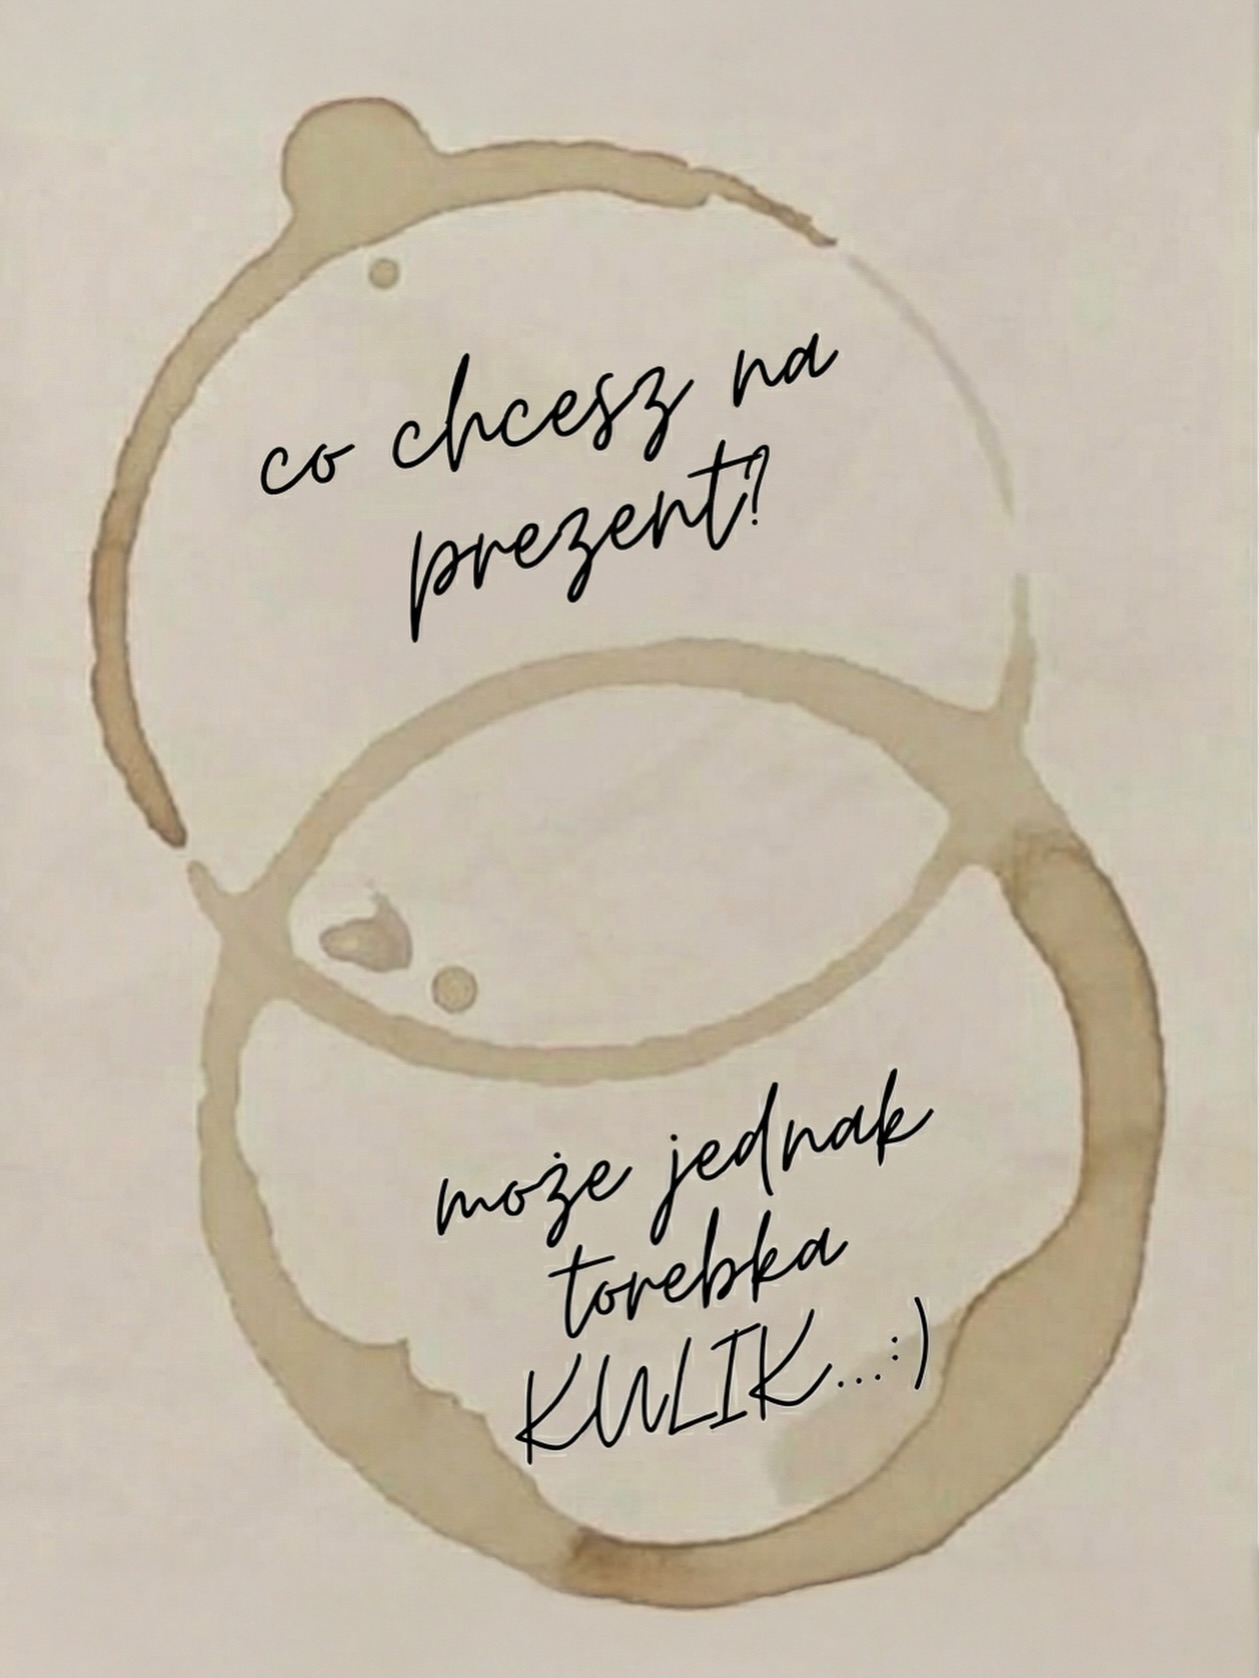 co chcesz na
prezent?
może jednak
torebka
KULIK...:)